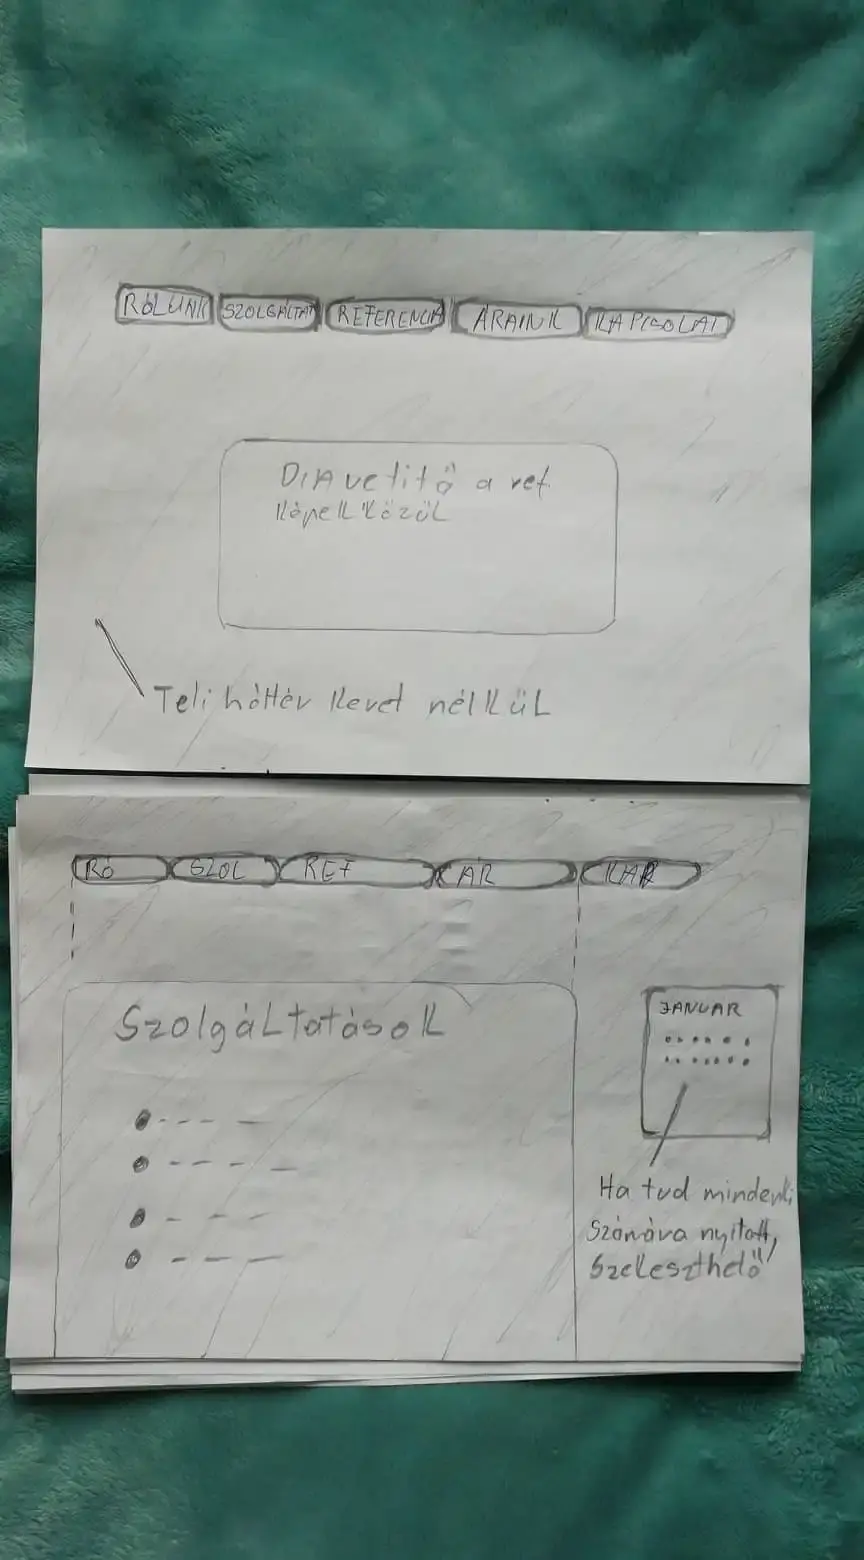 RÓLUNK SZOLGÁLTAT REFERENCIA ÁRAINK KAPCSOLAT
DIAvetítő a ref.
képek közül
Teli háttér keret nélkül
RÓ SZOL REF ÁR KAP
Szolgáltatások
JANUAR
Ha tud mindenki
számára nyitott,
Szekeszthető